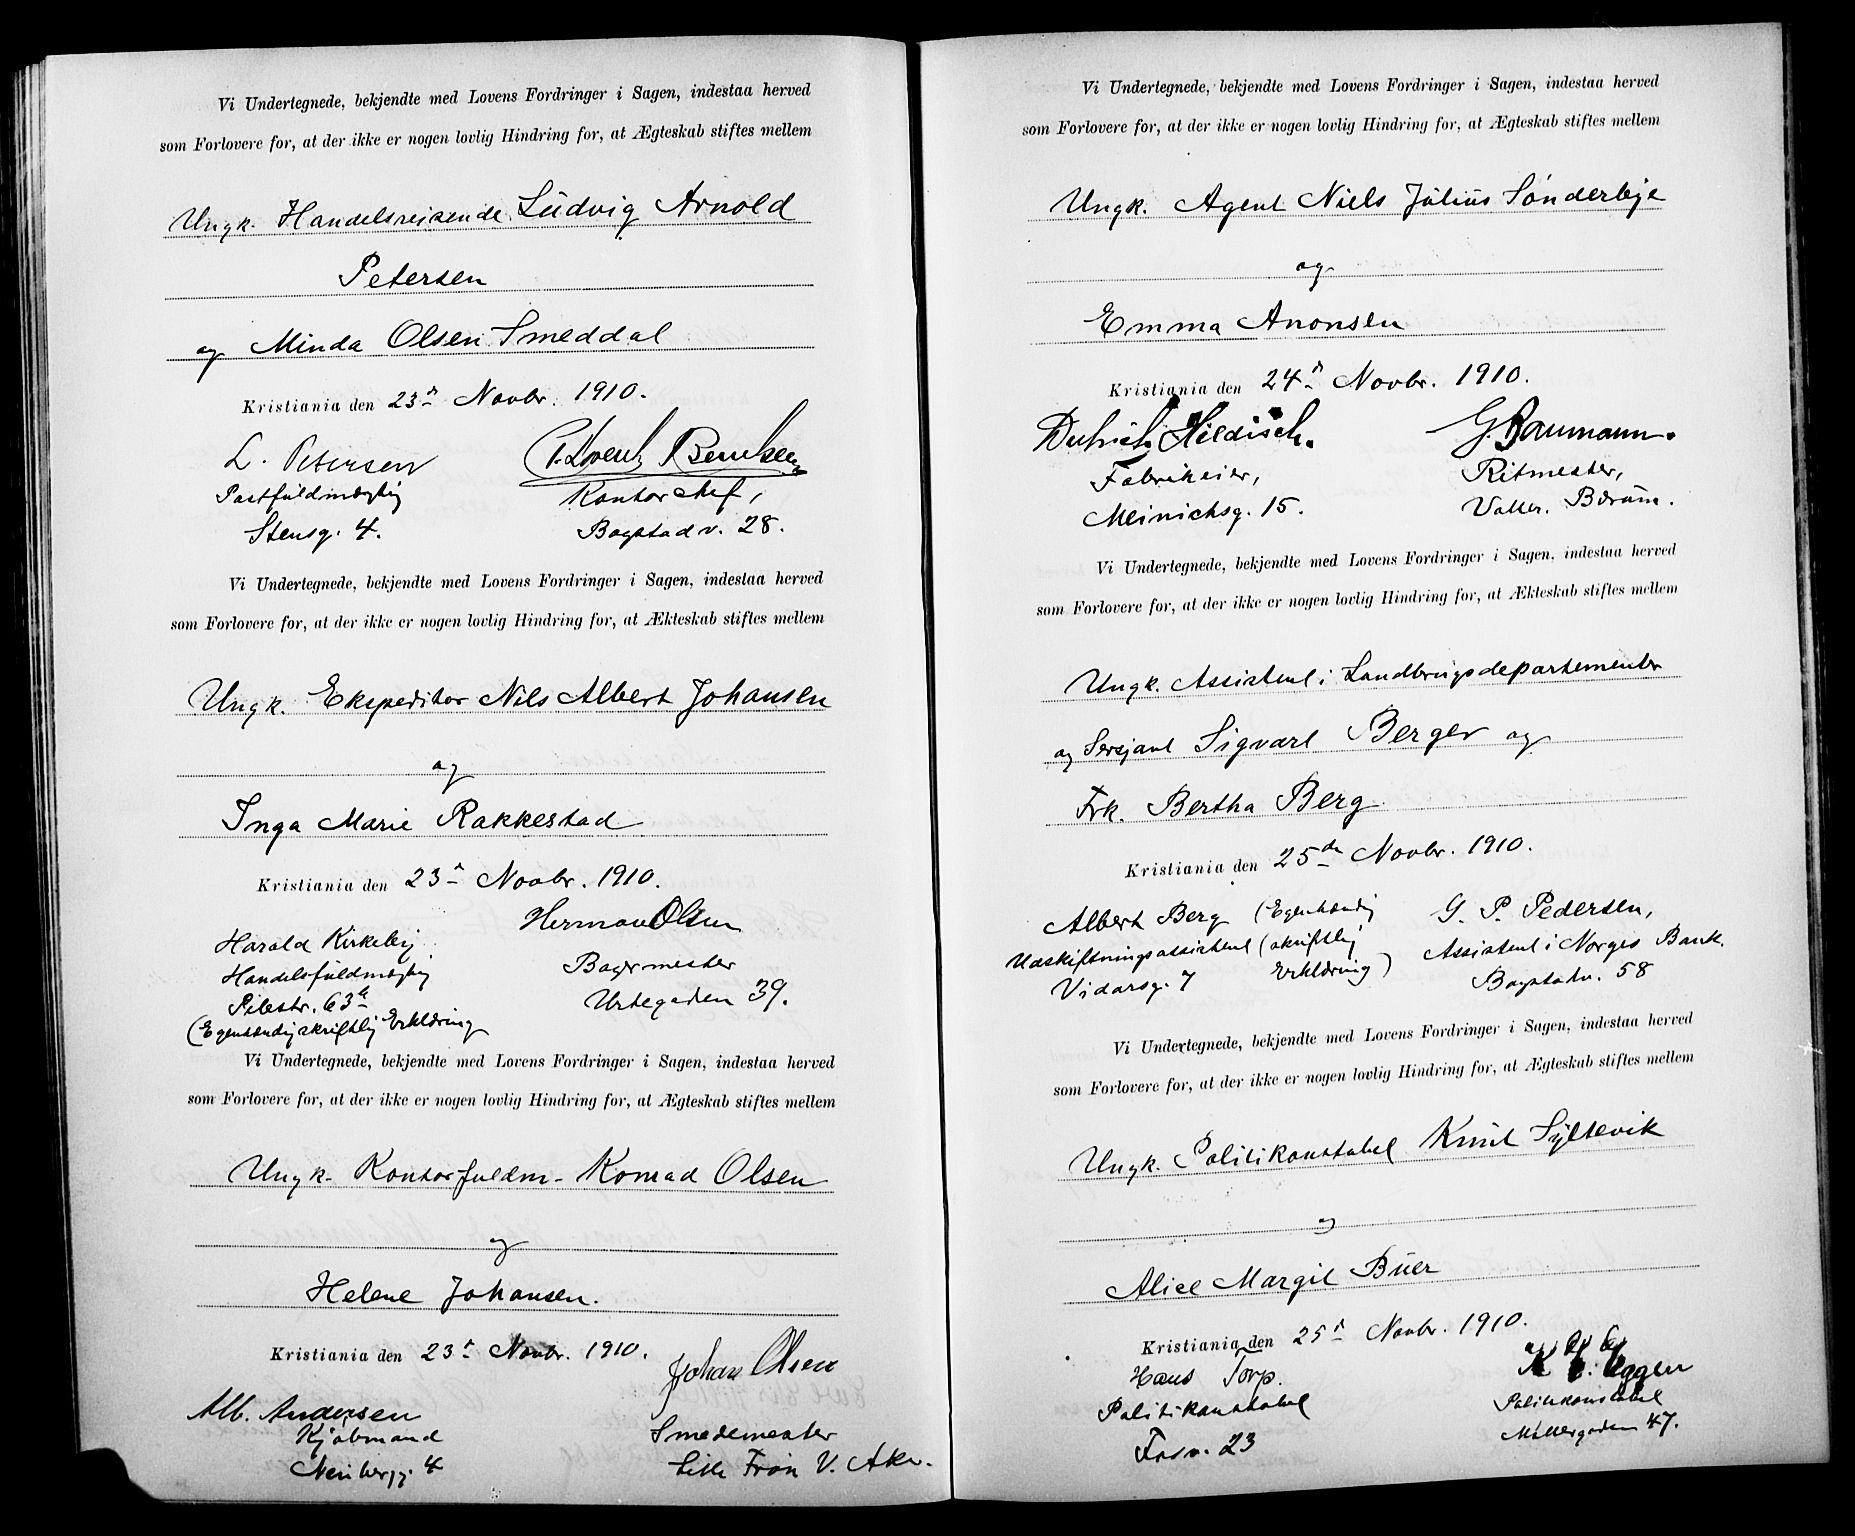 Vi Undertegnede, bekjendte med Lovens Fordringer i Sagen, indestaa herved
som Forlovere for, at der ikke er nogen lovlig Hindring for, at Ægteskab stiftes mellem
Ungk. Handelsreisende Ludvig Arnold
Petersen
og Minda Olsen Smeddal
Kristiania den 23d Novbr. 1910.
L. Petersen
Postfuldmægtig
Stensg. 4.
Kontorchef,
Bogstadv. 28.
Vi Undertegnede, bekjendte med Lovens Fordringer i Sagen, indestaa herved
som Forlovere for, at der ikke er nogen lovlig Hindring for, at Ækteskab stiftes mellem
Ungk. Ekspeditør Nils Albert Johansen
og
Inga Marie Rakkestad
Kristiania den 23d Novbr. 1910.
Harald Kirkeby
Handelsfuldmægtig
Pilestr. 63
(Egenhændig skriftlig Erklæring
Herman Olsen
Bagermester
Urtegaden 39.
Vi Undertegnede, bekjendte med Lovens Fordringer i Sagen, indestaa herved
som Forlovere for, at der ikke er nogen lovlig Hindring for, at Ægteskab stiftes mellem
Ungk. Kontorfuldm. Konrad Olsen
og
Helene Johansen.
Kristiania den 23d Novbr. 1910.
Alb. Andersen
Kjøbmand
4
Johan Olsen
Smedemester
Lille Frøn V. Aker.
Vi Undertegnede, bekjendte med Lovens Fordringer i Sagen, indestaa herved
som Forlovere for, at der ikke er nogen lovlig Hindring for, at Ægteskab stiftes mellem
Ungk. Agent Niels Julius Sønderbye
og
Emma Anonsen
Kristiania den 24d Novbr. 1910.
Hildisch.
Fabrikeier,
Meinichsg. 15.
G. Baumann.
Ritmester,
Valler. Bærum.
Vi Undertegnede, bekjendte med Lovens Fordringer i Sagen, indestaa herved
som Forlovere for, at der ikke er nogen lovlig Hindring for, at Ækteskab stiftes mellem
Ungk. Assistent i Landbrugsdepartementet
og Sersjant Sigvart Berger og
Frk. Bertha Berg
Kristiania den 25de Novbr. 1910.
Albert Berg (Egenhændig
Udskiftningsassistent (skriftlig
Vidarsg. 7 Erklæring)
G. P. Pedersen,
Assistent i Norges Bank.
Bogstadv. 58
Vi Undertegnede, bekjendte med Lovens Fordringer i Sagen, indestaa herved
som Forlovere for, at der ikke er nogen lovlig Hindring for, at Ægteskab stiftes mellem
Ungk. Politikonstabel Knut Syltevik
og
Alice Margit Buer
Kristiania den 25d Novbr. 1910.
Hans Torp.
Politikonstabel
23
Eggen
Politikonstabel
Møllergaden 47.